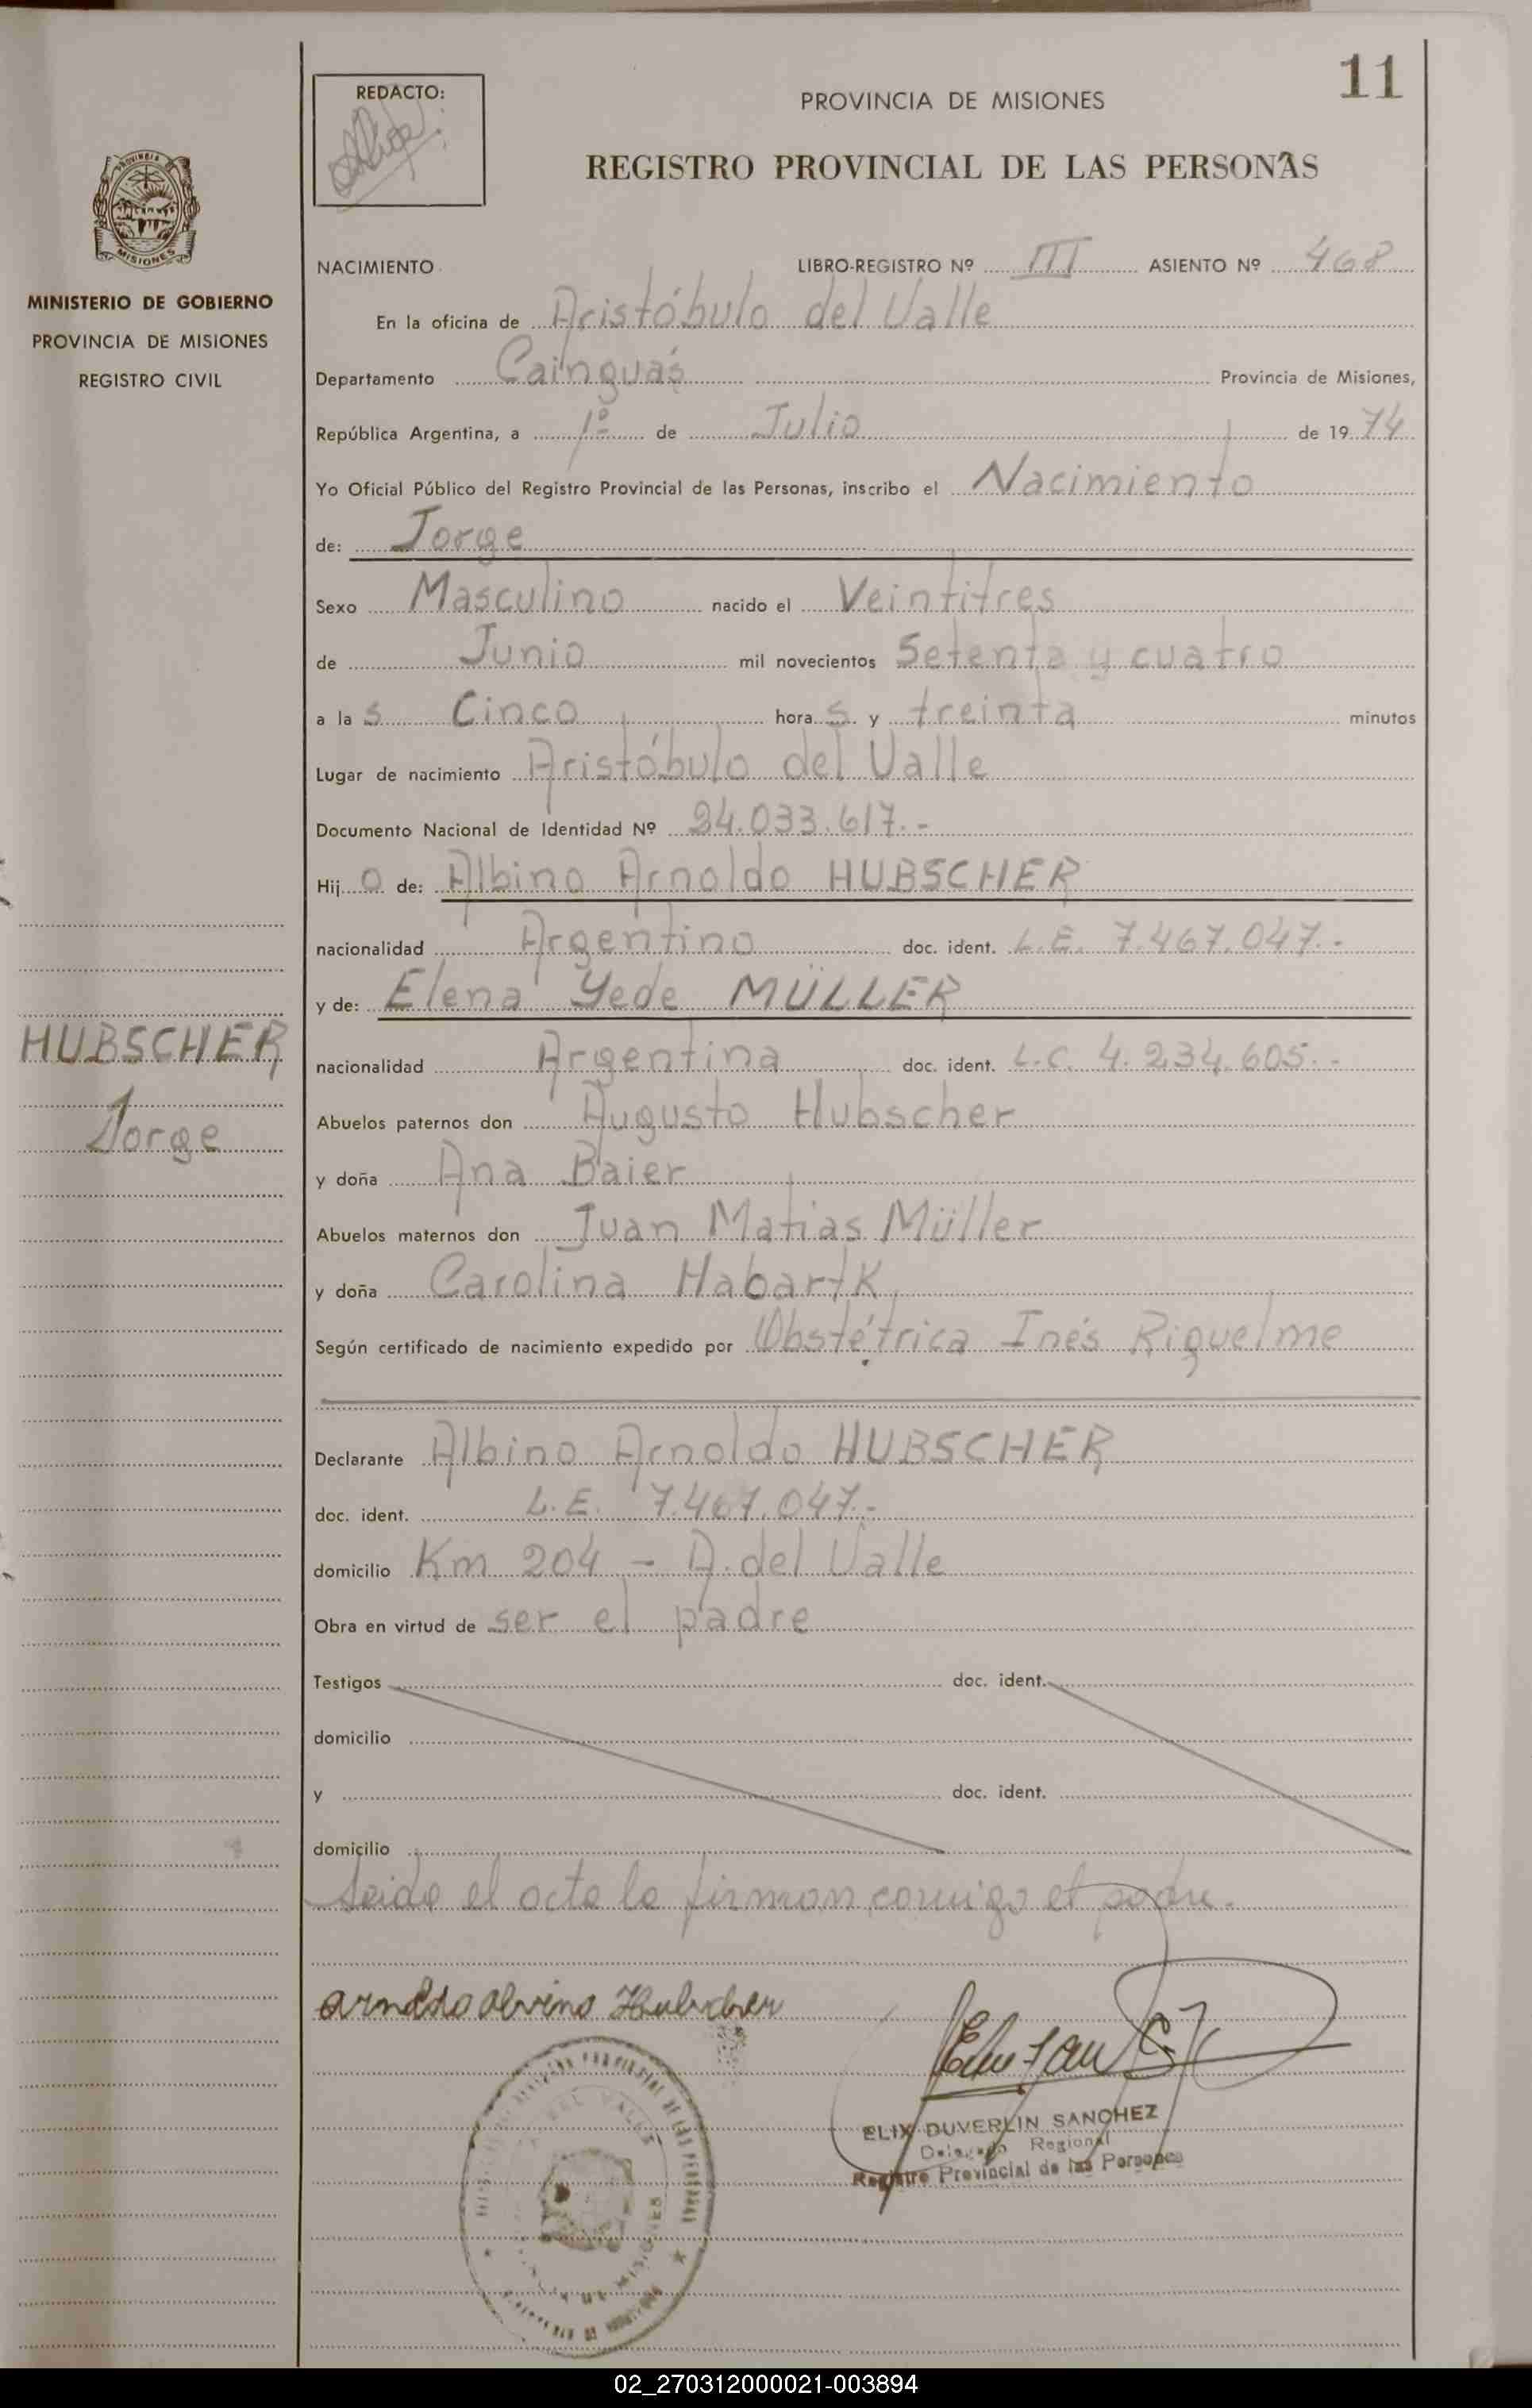 11
REDACTO:
PROVINCIA DE MISIONES
REGISTRO PROVINCIAL DE LAS PERSONAS
PROVINCIA
MISIONES
MINISTERIO DE GOBIERNO
PROVINCIA DE MISIONES
REGISTRO CIVIL
HUBSCHER
Jorge
NACIMIENTO LIBRO-REGISTRO Nº III ASIENTO Nº 468
En la oficina de Aristóbulo del Valle
Departamento Cainguás Provincia de Misiones,
República Argentina, a 1º de Julio de 1974
Yo Oficial Público del Registro Provincial de las Personas, inscribo el Nacimiento
de: Jorge
Sexo Masculino nacido el Veintitres
de Junio mil novecientos Setenta y cuatro
a las Cinco horas y treinta minutos
Lugar de nacimiento Aristóbulo del Valle
Documento Nacional de Identidad Nº 24.033.617.-
Hijo de: Albino Arnoldo HUBSCHER
nacionalidad Argentino doc. ident. L.E. 7.467.047.-
y de: Elena Yede MÜLLER
nacionalidad Argentina doc. ident. L.C. 4.234.605.-
Abuelos paternos don Augusto Hubscher
y doña Ana Baier
Abuelos maternos don Juan Matias Müller
y doña Carolina Habartk
Según certificado de nacimiento expedido por Obstétrica Inés Riquelme
Declarante Albino Arnoldo HUBSCHER
doc. ident. L.E. 7.467.047.-
domicilio Km 204 - A. del Valle
Obra en virtud de ser el padre
Testigos doc. ident.
domicilio
y doc. ident.
domicilio
Leida el acta la firman conmigo el padre.
Arnoldo Alvino Hubscher
ELIX DUVERLIN SANCHEZ
Delegado Regional
Registro Provincial de las Personas
02_270312000021-003894